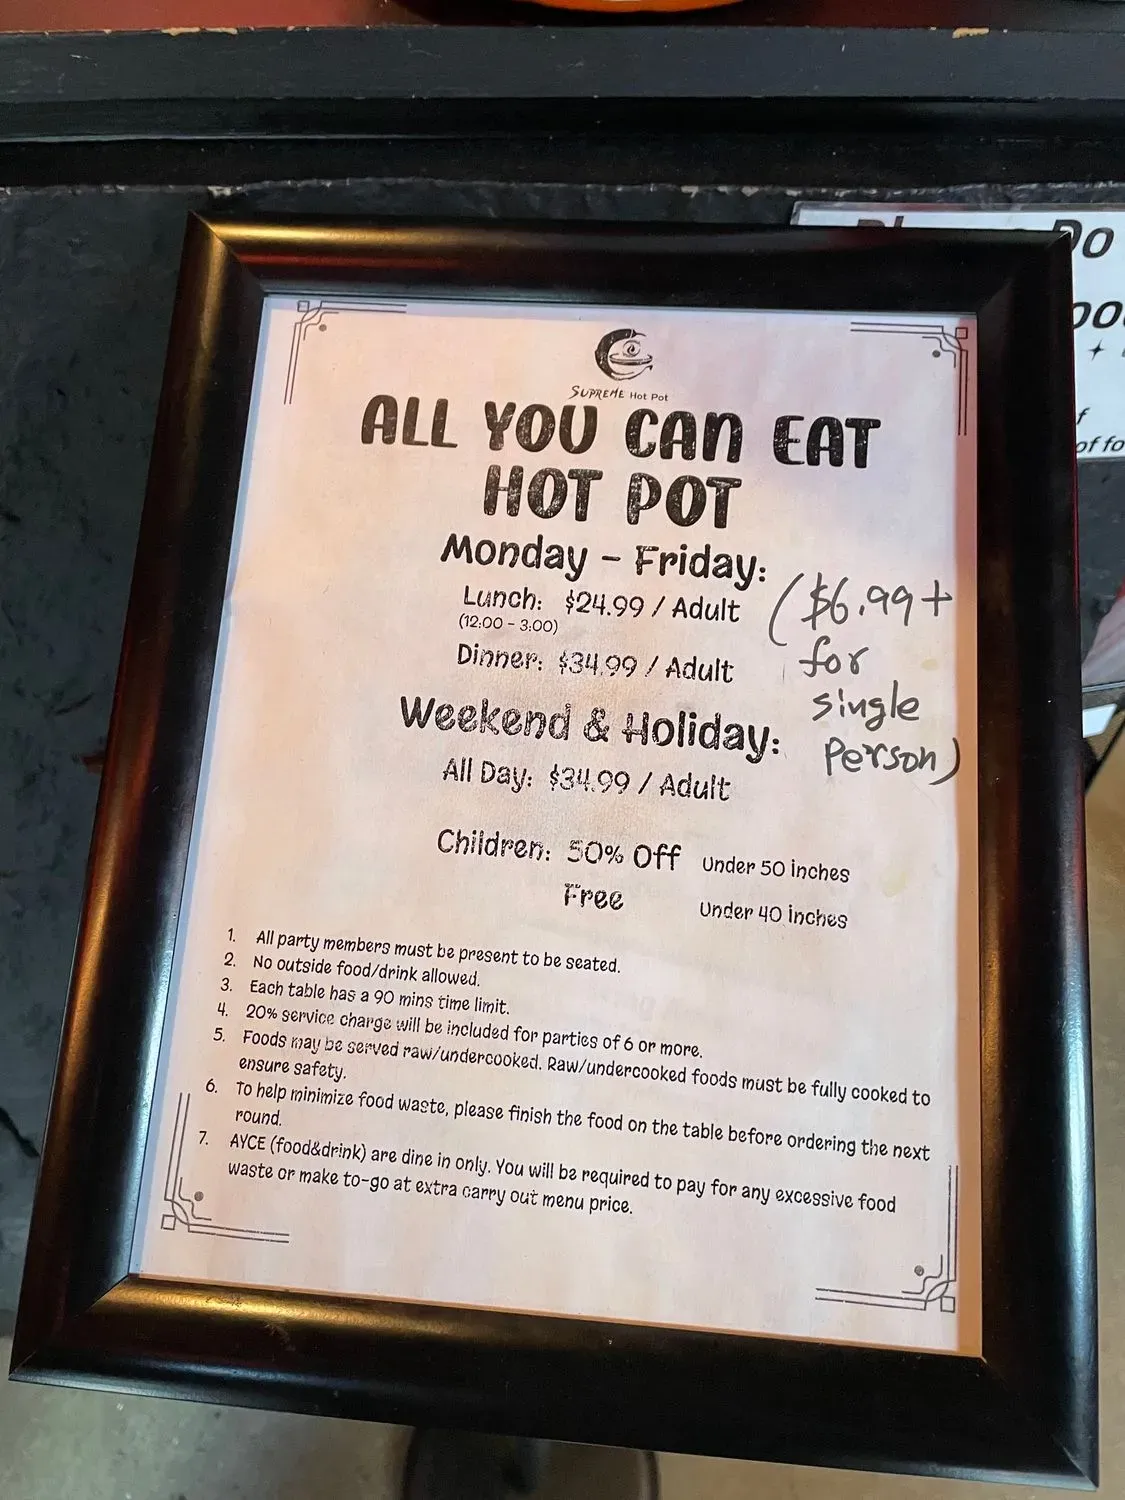 SUPREME Hot Pot
ALL YOU CAN EAT
HOT POT
Monday - Friday:
Lunch: $24.99 / Adult
(12:00 - 3:00)
Dinner: $34.99 / Adult
($6.99+
for
single
Person)
Weekend & Holiday:
All Day: $34.99 / Adult
Children: 50% Off Under 50 inches
Free Under 40 inches
1. All party members must be present to be seated.
2. No outside food/drink allowed.
3. Each table has a 90 mins time limit.
4. 20% service charge will be included for parties of 6 or more.
5. Foods may be served raw/undercooked. Raw/undercooked foods must be fully cooked to
ensure safety.
6. To help minimize food waste, please finish the food on the table before ordering the next
round.
7. AYCE (food&drink) are dine in only. You will be required to pay for any excessive food
waste or make to-go at extra carry out menu price.
Do
of fo